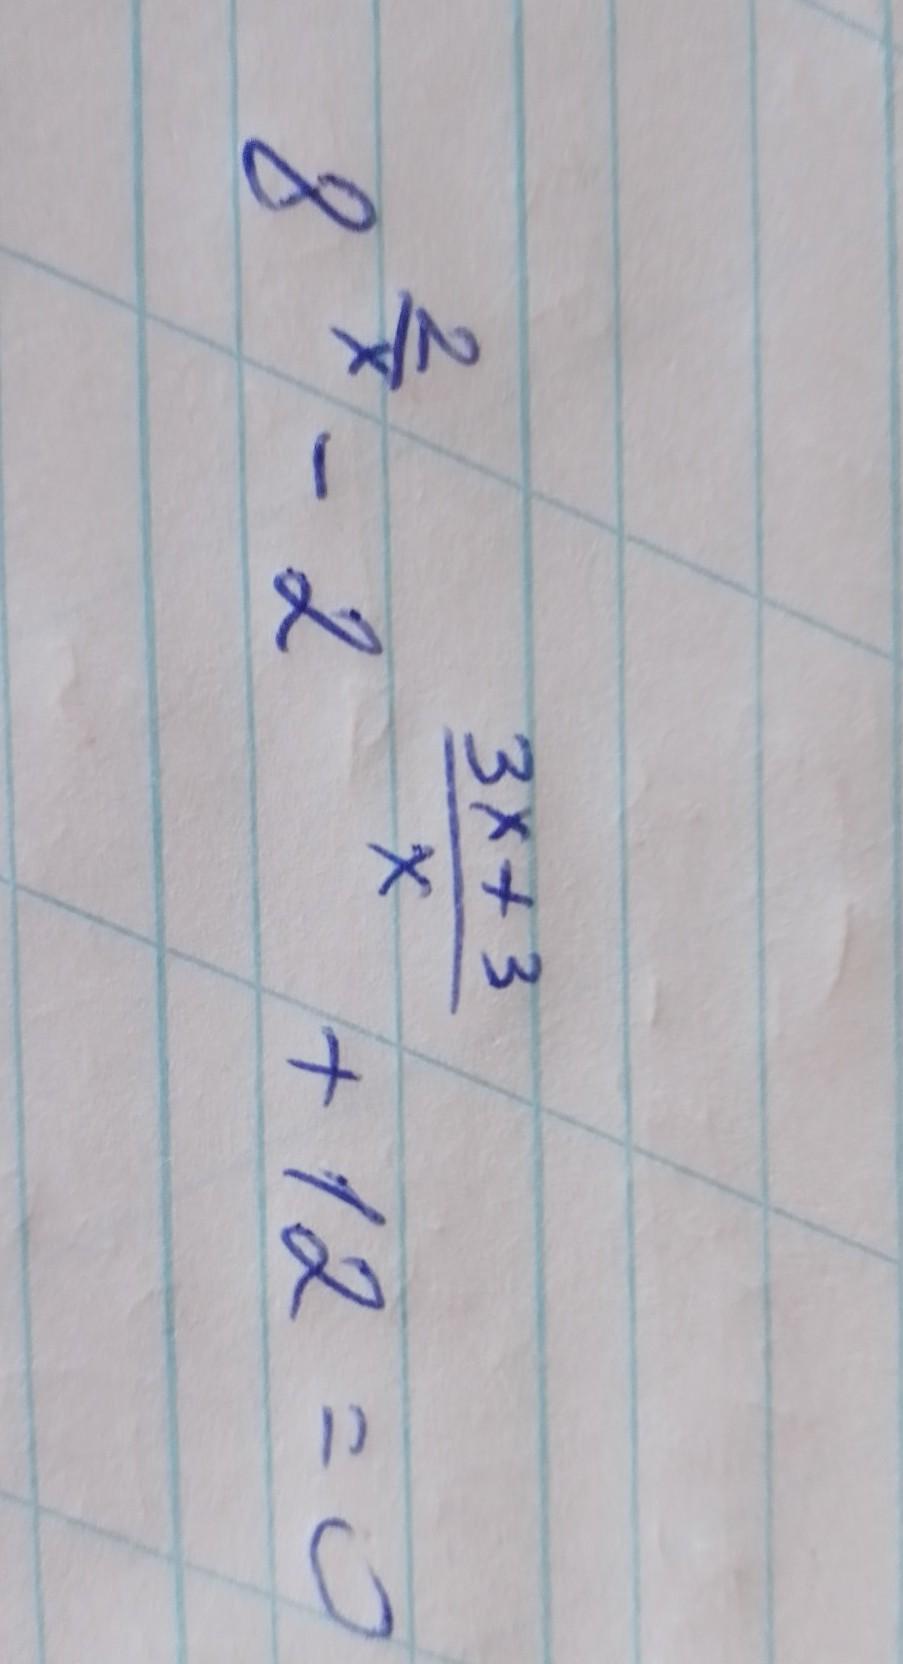 8^{\frac{2}{x}} - 2^{\frac{3x+3}{x}} + 12 = 0